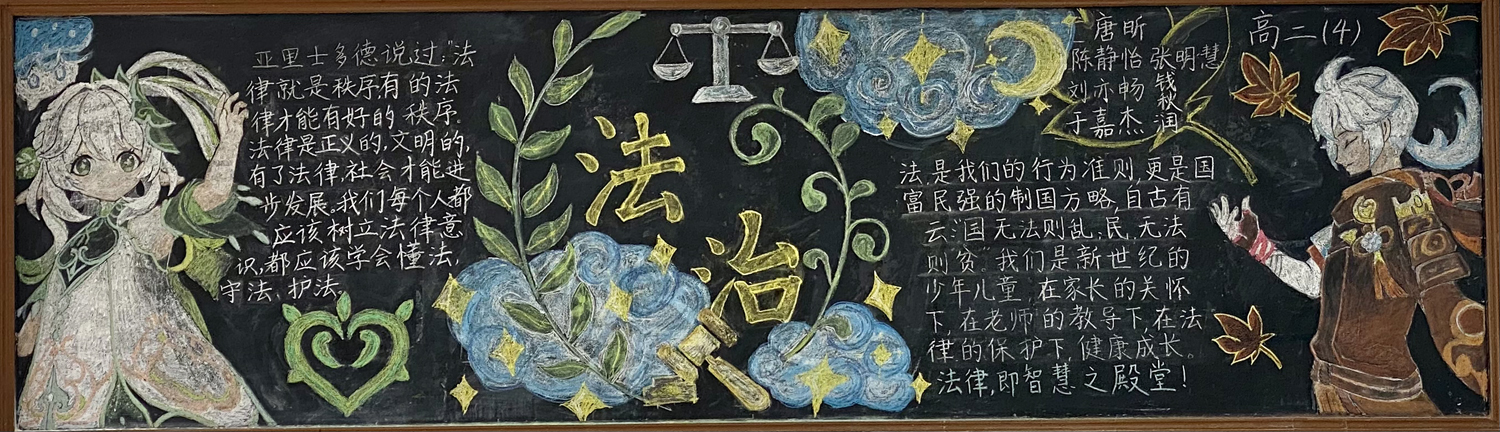 亚里士多德说过:"法
律就是秩序有的法
律才能有好的秩序.
法律是正义的,文明的,
有了法律,社会才能进
一步发展。我们每个人都
应该树立法律意
识,都应该学会懂法,
守法、护法.
法
治
唐昕
陈静怡 张明慧
刘亦畅 钱秋润
于嘉杰
高二(4)
法,是我们的行为准则,更是国
富民强的制国方略,自古有
云:"国无法则乱,民,无法
则贫".我们是新世纪的
少年儿童,在家长的关怀
下,在老师的教导下,在法
律的保护下,健康成长。
法律,即智慧之殿堂!